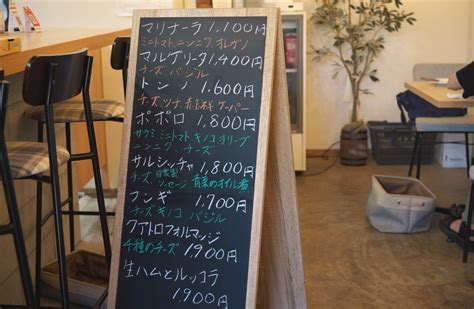 マリナーラ 1,100円
ミニトマト、ニンニク、オレガノ
マルゲリータ 1,400円
チーズ バジル
トンノ 1,600円
チーズ、ツナ 赤玉ネギ ケーパー
ポポロ 1,800円
サラミ、ミニトマト キノコ オリーブ
ニンニク、チーズ
サルシッチャ 1,800円
チーズ、自家製ソーセージ
フンギ 1,700円
チーズ キノコ バジル
クアトロフォルマッジ
4種のチーズ 1,900円
生ハムとルッコラ
1,900円